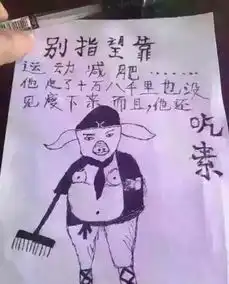 别指望靠
运动减肥……
他走了十万八千里也没
见瘦下来而且，他还
吃素